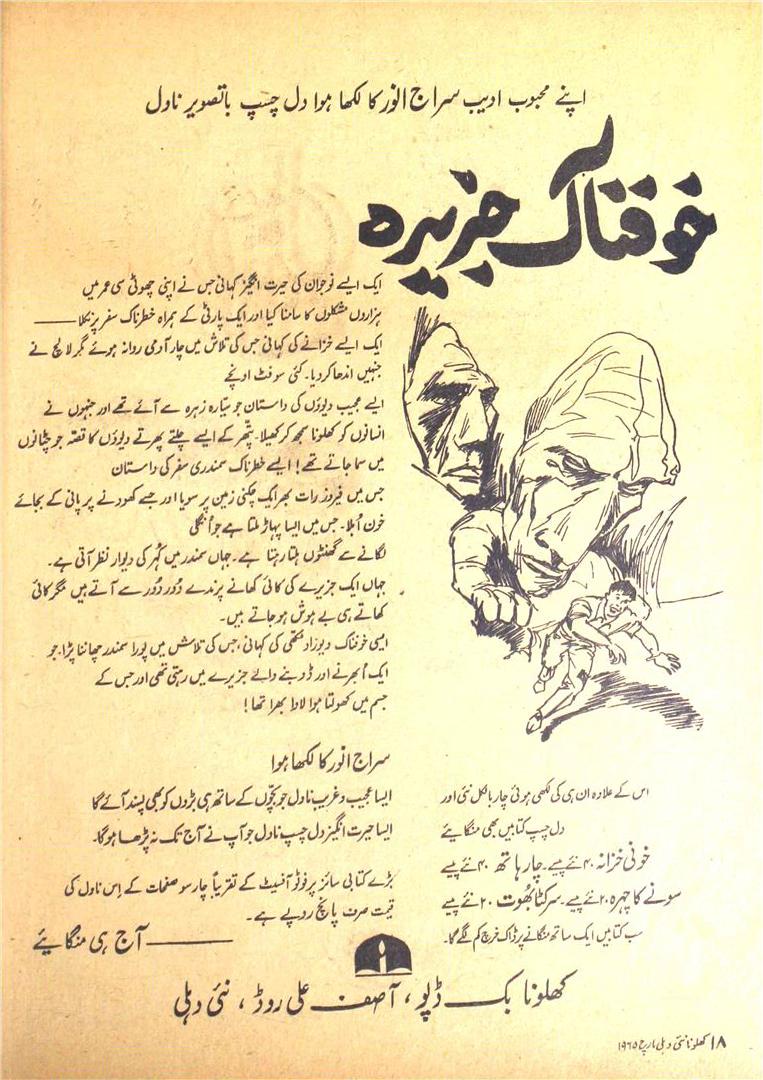 اپنے محبوب ادیب سراج انور کا لکھا ہوا دل چسپ باتصویر ناول
خوفناک جزیرہ
ایک ایسے نوجوان کی حیرت انگیز کہانی جس نے اپنی چھوٹی سی عمر میں
ہزاروں مشکلوں کا سامنا کیا اور ایک پارٹی کے ہمراہ خطرناک سفر پر نکلا ——
ایک ایسے خزانے کی کہانی جس کی تلاش میں چار آدمی روانہ ہوئے مگر لالچ نے
جنہیں اندھا کر دیا۔ کئی سو فٹ اونچے
ایسے عجیب دیوؤں کی داستان جو سیّارہ زہرہ سے آئے تھے اور جنہوں نے
انسانوں کو کھلونا سمجھ کر کھیلا۔ پتّھر کے ایسے چلتے پھرتے دیوؤں کا قصّہ جو چٹانوں
میں سما جاتے تھے! ایسے خطرناک سمندری سفر کی داستان
جس میں فیروز رات بھر ایک چکنی زمین پر سویا اور جسے کھودنے پر پانی کے بجائے
خون اُبلا۔ جس میں ایسا پہاڑ ملتا ہے جو اُنگلی
لگانے سے گھنٹوں ہلتا رہتا ہے۔ جہاں سمندر میں کُہر کی دیوار نظر آتی ہے۔
جہاں ایک جزیرے کی کائی کھانے پرندے دُور دُور سے آتے ہیں مگر کائی
کھاتے ہی بے ہوش ہو جاتے ہیں۔
ایسی خوفناک دیوزاد مکھی کی کہانی، جس کی تلاش میں پورا سمندر چھاننا پڑا۔ جو
ایک اُبھرنے اور ڈوبنے والے جزیرے میں رہتی تھی اور جس کے
جسم میں کھولتا ہوا لاوا بھرا تھا!
سراج انور کا لکھا ہوا
ایسا عجیب و غریب ناول جو بچّوں کے ساتھ ہی بڑوں کو بھی پسند آئے گا
ایسا حیرت انگیز دل چسپ ناول جو آپ نے آج تک نہ پڑھا ہوگا۔
بڑے کتابی سائز پر فوٹو آفسیٹ کے تقریباً چار سو صفحات کے اِس ناول کی
قیمت صرف پانچ روپے ہے۔
—— آج ہی منگائیے
اس کے علاوہ ان ہی کی لکھی ہوئی چار بالکل نئی اور
دل چسپ کتابیں بھی منگائیے
خونی خزانہ ۴۰ نئے پیسے۔ چار ہاتھ ۴۰ نئے پیسے
سونے کا چہرہ ۲۰ نئے پیسے۔ سر کٹا بھُوت ۲۰ نئے پیسے
سب کتابیں ایک ساتھ منگانے پر ڈاک خرچ کم لگے گا۔
کھلونا بک ڈپو، آصف علی روڈ، نئی دہلی
۱۸ کھلونا نئی دہلی مارچ ۱۹۶۵